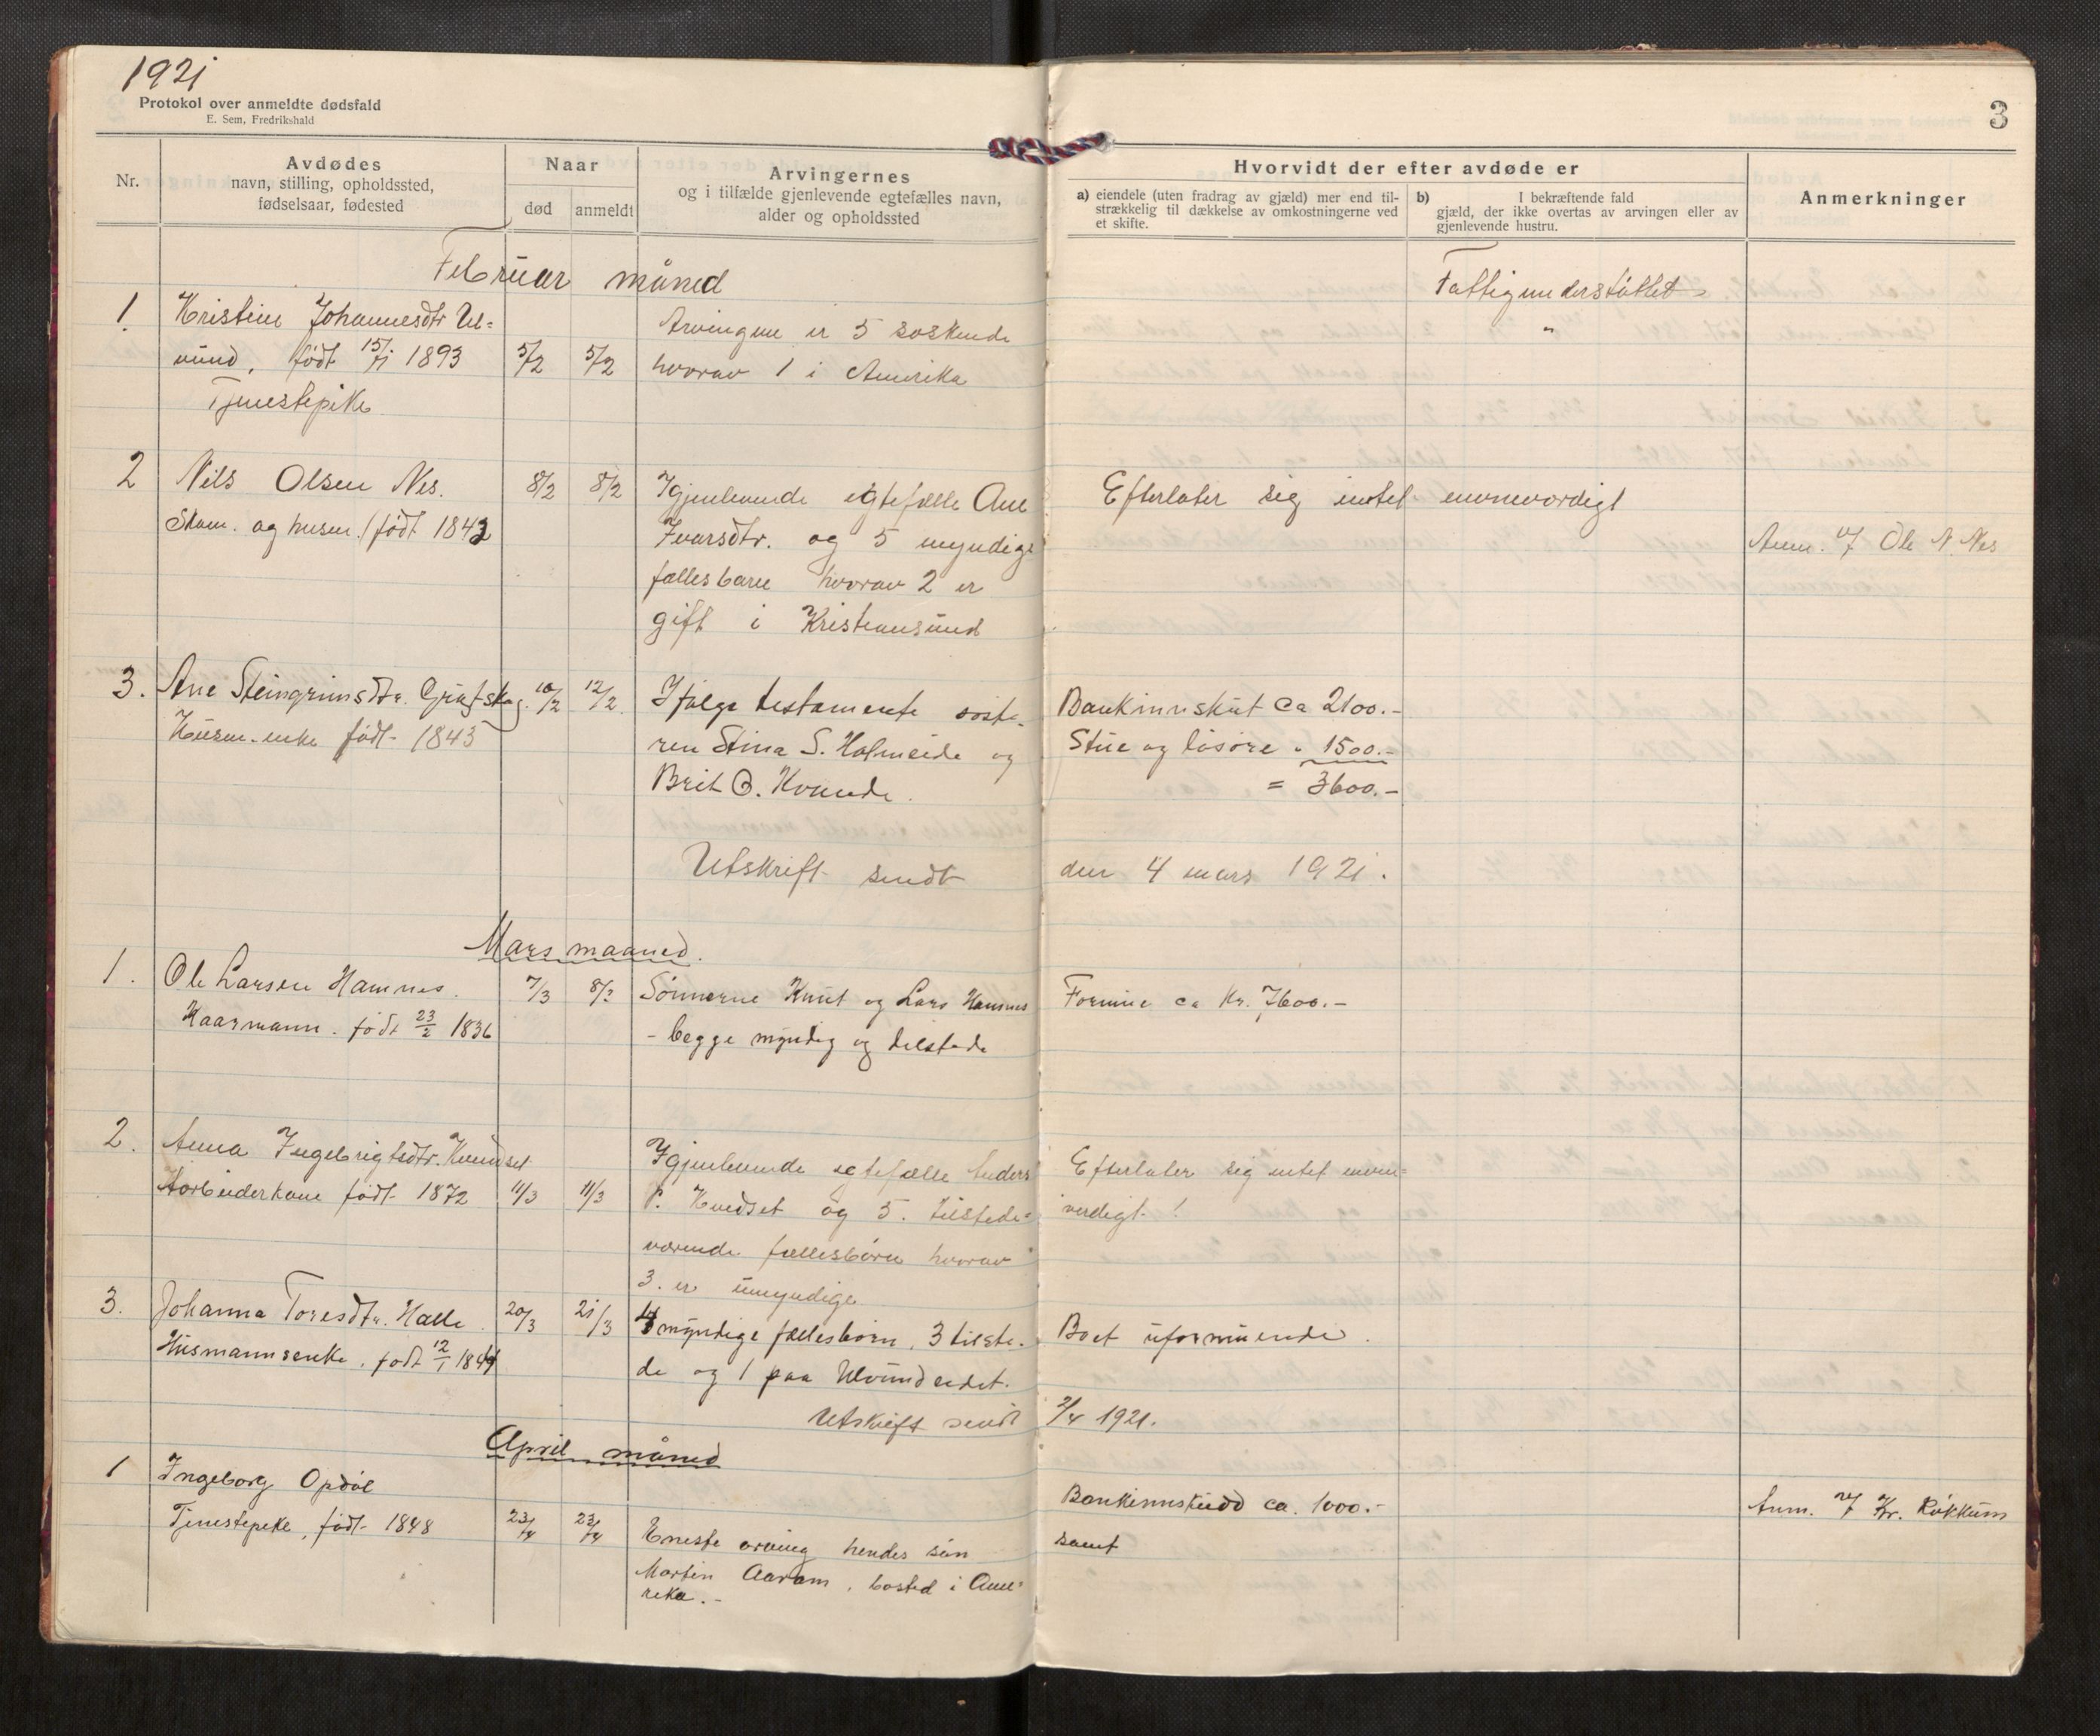 1921
Protokol over anmeldte dødsfald
E. Sem, Fredrikshald
3
Nr.
Avdødes
navn, stilling, opholdssted,
fødselsaar, fødested
Naar
død
anmeldt
Arvingernes
og i tilfælde gjenlevende egtefælles navn,
alder og opholdssted
Hvorvidt der efter avdøde er
a) eiendele (uten fradrag av gjæld) mer end til-
strækkelig til dækkelse av omkostningerne ved
et skifte.
b) I bekræftende fald
gjæld, der ikke overtas av arvingen eller av
gjenlevende hustru.
Anmerkninger
Februar måned
1.
Kristine Johannesdtr Ul=
vund, født 15/1 1893
Tjenestepike
5/2
5/2
Arvingene er 5 søskende
hvorav 1 i Amerika
Fattigunderstøttet
"
2
Nils Olsen Nes.
Skom. og husm. født 1843
8/2
8/2
Igjenlevende egtefælle Ane
Ivarsdtr. og 5 myndige
fælles barn hvorav 2 er
gift i Kristiansund
Efterlater sig intet
Anm. v/ Ole N. Nes
3.
Ane Steingrimsdtr.
Husm.enke født 1843
10/2
12/2
Ifølge testamente søste-
ren Stina S. Holmeide og
Brit O. Kvande.
Bankinnskut ca 2100.-
Stue og løsøre " 1500.-
= 3600.-
Utskrift sendt
den 4 mars 1921.
Mars maaned.
1.
Ole Larsen Hamnes.
Kaarmann. født 23/2 1836
7/3
8/3
Sønnerne Knut og Lars Hamnes
- begge myndig og tilstede
Formue ca Kr. 7600.-
2.
Anna Ingebrigtsdtr. Kvendset
Arbeiderkone født 1872
11/3
11/3
Igjenlevende egtefælle Anders
P. Kvedset og 5. tilstede=
værende fællesbørn hvorav
3. er umyndige
Efterlater sig intet
verdigt!
3.
Johanna Toresdtr. Halle
Husmannsenke. født 12/1 1844
20/3
21/3
4 myndige fællesbørn, 3 tilste-
de og 1 paa Ulvundeidet.
Boet uformuende.
Utskrift sendt
2/4 1921.
April måned
1
Ingeborg Opdøl
Tjenestepike, født 1848
23/4
23/4
Eneste arving hendes søn
Martin Aaram, bosted i Ame=
rika.-
Bankinnskudd ca. 1000.-
samt
Anm. v/ Kr. Røkkum